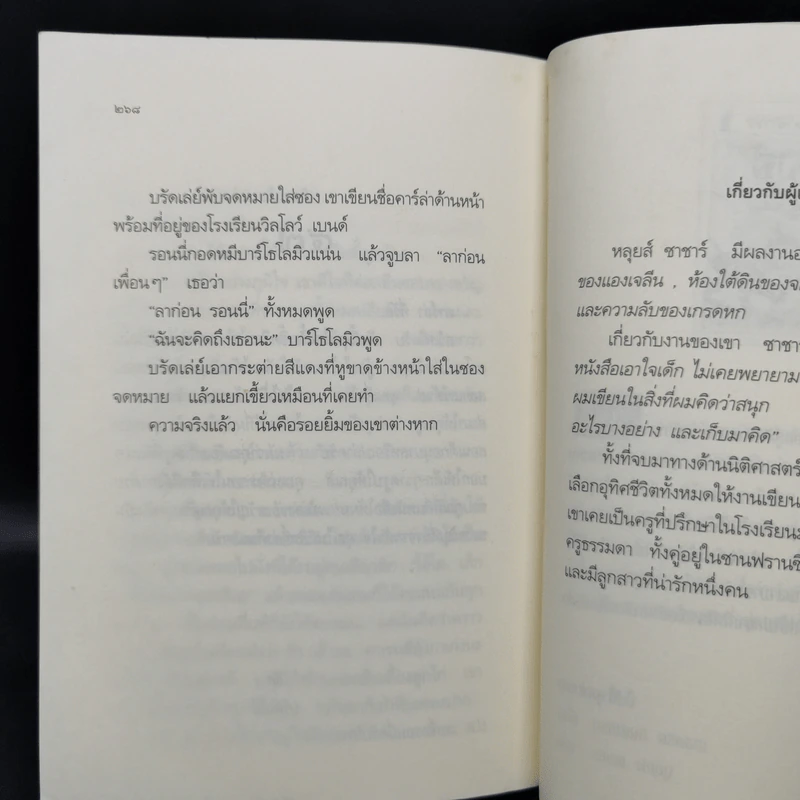 ๒๖๘
บรัดเล่ย์พับจดหมายใส่ซอง เขาเขียนชื่อคาร์ล่าด้านหน้า
พร้อมที่อยู่ของโรงเรียนวิลโลว์ เบนด์
รอนนี่กอดหมีบาร์โธโลมิวแน่น แล้วจูบลา “ลาก่อน
เพื่อนๆ” เธอว่า
“ลาก่อน รอนนี่” ทั้งหมดพูด
“ฉันจะคิดถึงเธอนะ” บาร์โธโลมิวพูด
บรัดเล่ย์เอากระต่ายสีแดงที่หูขาดข้างหน้าใส่ในซอง
จดหมาย แล้วแยกเขี้ยวเหมือนที่เคยทำ
ความจริงแล้ว นั่นคือรอยยิ้มของเขาต่างหาก
เกี่ยวกับผู้
หลุยส์ ซาชาร์ มีผลงาน
ของแองเจลีน , ห้องใต้ดินของ
และความลับของเกรดหก
เกี่ยวกับงานของเขา ซาชาร์
หนังสือเอาใจเด็ก ไม่เคยพยายาม
ผมเขียนในสิ่งที่ผมคิดว่าสนุก
อะไรบางอย่าง และเก็บมาคิด”
ทั้งที่จบมาทางด้านนิติศาสตร์
เลือกอุทิศชีวิตทั้งหมดให้งานเขียน
เขาเคยเป็นครูที่ปรึกษาในโรงเรียน
ครูธรรมดา ทั้งคู่อยู่ในซานฟรานซิ
และมีลูกสาวที่น่ารักหนึ่งคน